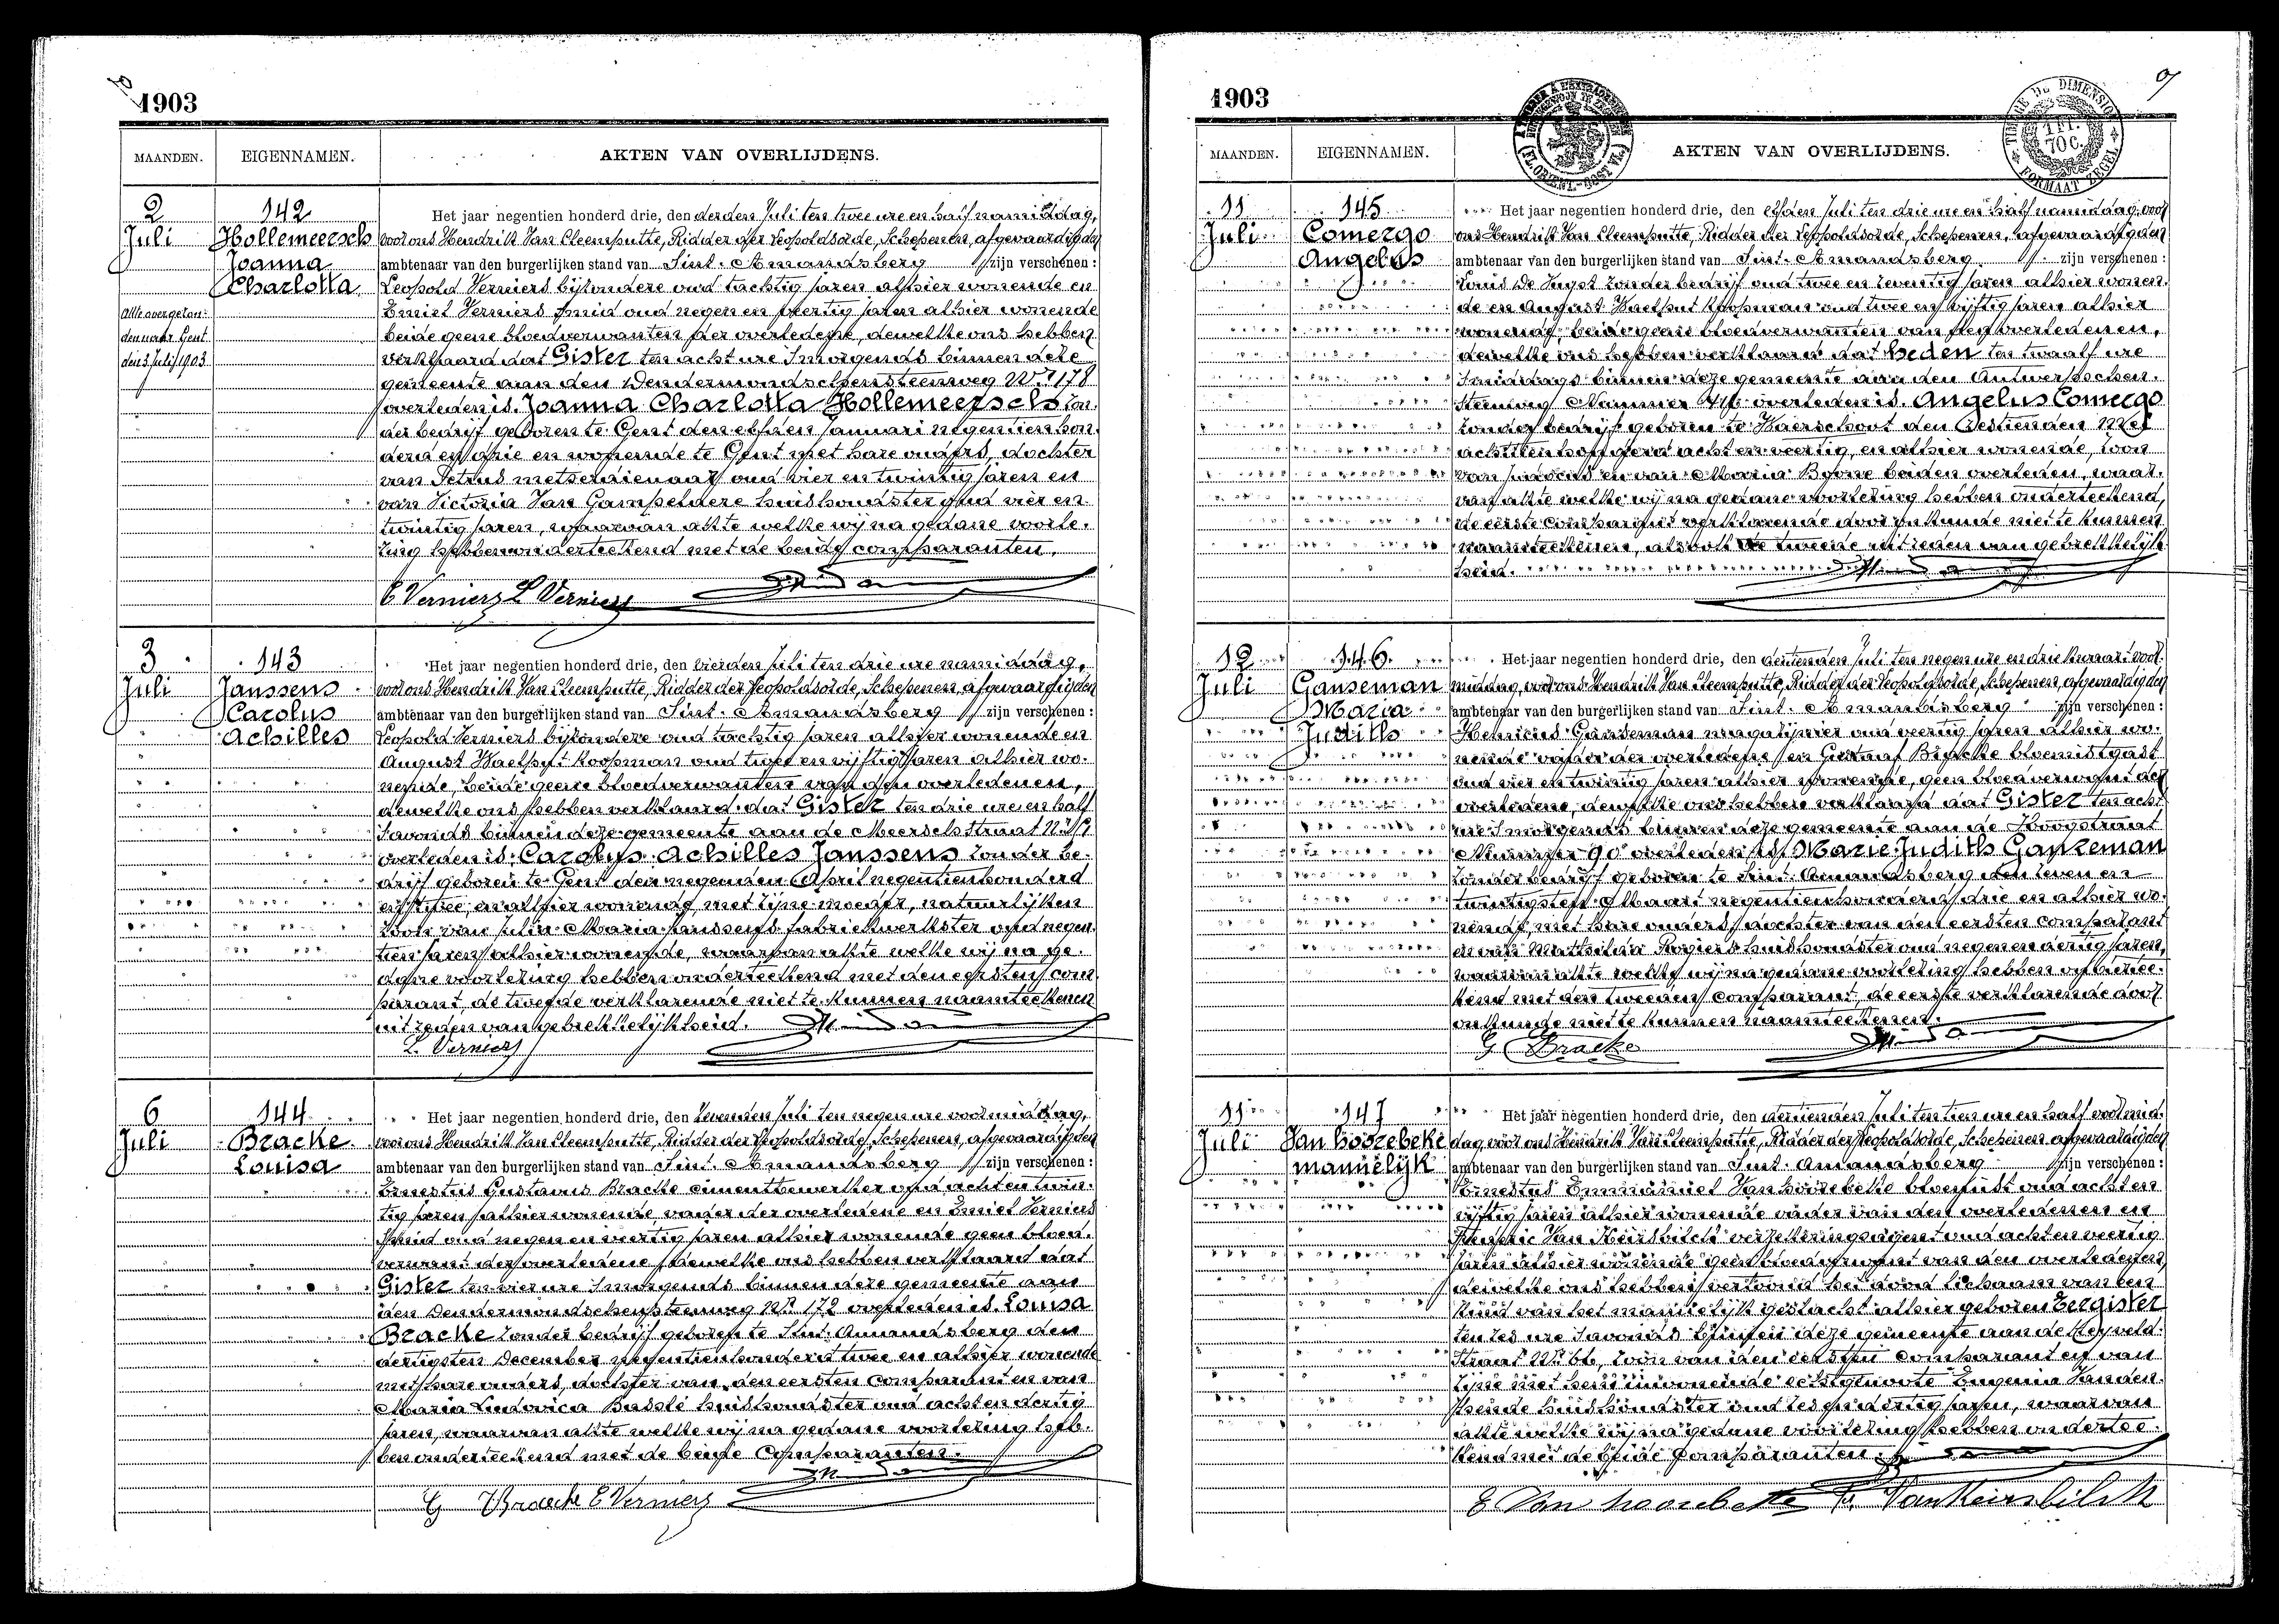 1903
MAANDEN. EIGENNAMEN. AKTEN VAN OVERLIJDENS.
2 Juli
142
Hollemeersch
Joanna
Charlotta
Akte overgezon-
den naar Gent
den 3 Juli 1903
Het jaar negentien honderd drie, den derden Juli ten twee ure en half namiddag,
voor ons Hendrik Van Cleemputte, Ridder der Leopoldsorde, Schepenen, afgevaardigden
ambtenaar van den burgerlijken stand van Sint-Amandsberg zijn verschenen:
Leopold Verniers bijzondere oud tachtig jaren alhier wonende en
Emiel Verniers smid oud negen en veertig jaren alhier wonende
beide geene bloedverwanten der overledene, dewelke ons hebben
verklaard dat Gister ten acht ure 's morgends binnen deze
gemeente aan den Dendermondschensteenweg Nr 178
overleden is Joanna Charlotta Hollemeersch zon-
der bedrijf geboren te Gent den elfden Januari negentien hon-
derd en drie en wonende te Gent met hare ouders, dochter
van Petrus metserdienaar oud vier en twintig jaren en
van Victoria Van Gampelaere huishoudster oud vier en
twintig jaren, waarvan akte welke wij na gedane voorle-
zing hebben onderteekend met de beide comparanten.
E Verniers L Verniers
3 Juli
143
Janssens
Carolus
Achilles
Het jaar negentien honderd drie, den vierden Juli ten drie ure namiddag,
voor ons Hendrik Van Cleemputte, Ridder der Leopoldsorde, Schepenen, afgevaardigden
ambtenaar van den burgerlijken stand van Sint-Amandsberg zijn verschenen:
Leopold Verniers bijzondere oud tachtig jaren alhier wonende en
August Haelput Koopman oud twee en vijftig jaren alhier wo-
nende, beide geene bloedverwanten van den overledenen,
dewelke ons hebben verklaard dat Gister ten drie ure en half
's avonds binnen deze gemeente aan de Meerschstraat
overleden is Carolus Achilles Janssens zonder be-
drijf geboren te Gent den negenden April negentienhonderd
en twee, en alhier wonende met zijne moeder, natuurlijken
zoon van Julia Maria Janssens fabriekwerkster oud negen-
tien jaren alhier wonende, waarvan akte welke wij na ge-
dane voorlezing hebben onderteekend met den eersten com-
parant, de tweede verklarende niet te kunnen naamteekenen
uit reden van gebrekkelijkheid.
L. Verniers
6 Juli
144
Bracke
Louisa
Het jaar negentien honderd drie, den zevenden Juli ten negen ure voormiddag,
voor ons Hendrik Van Cleemputte, Ridder der Leopoldsorde, Schepenen, afgevaardigden
ambtenaar van den burgerlijken stand van Sint-Amandsberg zijn verschenen:
Ernestus Gustavus Bracke cimentbewerker oud acht en twin-
tig jaren alhier wonende, vader der overledene en Emiel Verniers
smid oud negen en veertig jaren alhier wonende geen bloed-
verwant der overledene dewelke ons hebben verklaard dat
Gister ten vier ure 's morgends binnen deze gemeente aan
den Dendermondschensteenweg Nr 172 overleden is Louisa
Bracke zonder bedrijf geboren te Sint-Amandsberg den
dertigsten December negentienhonderd twee en alhier wonende
met hare ouders, dochter van den eersten comparant en van
Maria Ludovica huishoudster oud acht en dertig
jaren, waarvan akte welke wij na gedane voorlezing heb-
ben onderteekend met de beide Comparanten.
G Bracke E Verniers
1903
MAANDEN. EIGENNAMEN. AKTEN VAN OVERLIJDENS.
11 Juli
145
Comergo
Angelus
Het jaar negentien honderd drie, den elfden Juli ten drie ure en half namiddag, voor
ons Hendrik Van Cleemputte, Ridder der Leopoldsorde, Schepenen, afgevaardigden
ambtenaar van den burgerlijken stand van Sint-Amandsberg zijn verschenen:
Louis De zonder bedrijf oud twee en zeventig jaren alhier wonen-
de en August Haelput Koopman oud twee en vijftig jaren alhier
wonende, beide geene bloedverwanten van den overledenen,
dewelke ons hebben verklaard dat heden ten twaalf ure
's middags binnen deze gemeente aan den Antwerpschen-
steenweg Nummer overleden is Angelus Comergo
zonder bedrijf geboren te Waerschoot den zestienden Mei
achttienhonderd acht en veertig, en alhier wonende, zoon
van en van Maria Byone beiden overleden, waar-
van akte welke wij na gedane voorlezing hebben onderteekend,
de eerste comparant verklarende door onkunde niet te kunnen
naamteekenen, alsook de tweede uit reden van gebrekkelijk-
heid.
12 Juli
146
Ganseman
Maria
Judith
Het jaar negentien honderd drie, den dertienden Juli ten negen ure en drie kwaart voor-
middag, voor ons Hendrik Van Cleemputte, Ridder der Leopoldsorde, Schepenen, afgevaardigden
ambtenaar van den burgerlijken stand van Sint-Amandsberg zijn verschenen:
Henricus Ganseman magazijnier oud veertig jaren alhier wo-
nende vader der overledene en Gustaaf Bracke bloemistgast
oud vier en twintig jaren alhier wonende, geen bloedverwant der
overledene, dewelke ons hebben verklaard dat Gister ten acht
ure 's morgends binnen deze gemeente aan de Hoogstraat
Nummer 90 overleden is Marie Judith Ganzeman
zonder bedrijf geboren te Sint-Amandsberg den zeven en
twintigsten Maart negentienhonderd drie en alhier wo-
nende met hare ouders, dochter van den eersten comparant
en van Mathilda Rogiers huishoudster oud negen en dertig jaren,
waarvan akte welke wij na gedane voorlezing hebben ondertee-
kend met den tweeden comparant, de eerste verklarende door
onkunde niet te kunnen naamteekenen.
G Bracke
11 Juli
147
Van Hoorebeke
manuelijk
Het jaar negentien honderd drie, den dertienden Juli ten tien ure en half voormid-
dag, voor ons Hendrik Van Cleemputte, Ridder der Leopoldsorde, Schepenen afgevaardigden
ambtenaar van den burgerlijken stand van Sint-Amandsberg zijn verschenen:
Ernestus Emmanuel Van hoorebeke bloemist oud acht en
vijftig jaren alhier wonende vader van den overledenen en
Van Keirsbilck verzekeringsagent oud acht en veertig
jaren alhier wonende geen bloedverwant van den overledenen,
dewelke ons hebben vertoond het dood lichaam van een
kind van het mannelijk geslacht alhier geboren Eergister
ten zes ure 's avonds binnen deze gemeente aan de Heyveld-
straat Nr 66, zoon van den eersten comparant en van
zijne met hem inwonende echtgenoote Eugenia Vanden-
hende huishoudster oud zes en dertig jaren, waarvan
akte welke wij na gedane voorlezing hebben ondertee-
kend met de beide Comparanten.
E Van hoorebeke VanKeirsbilck